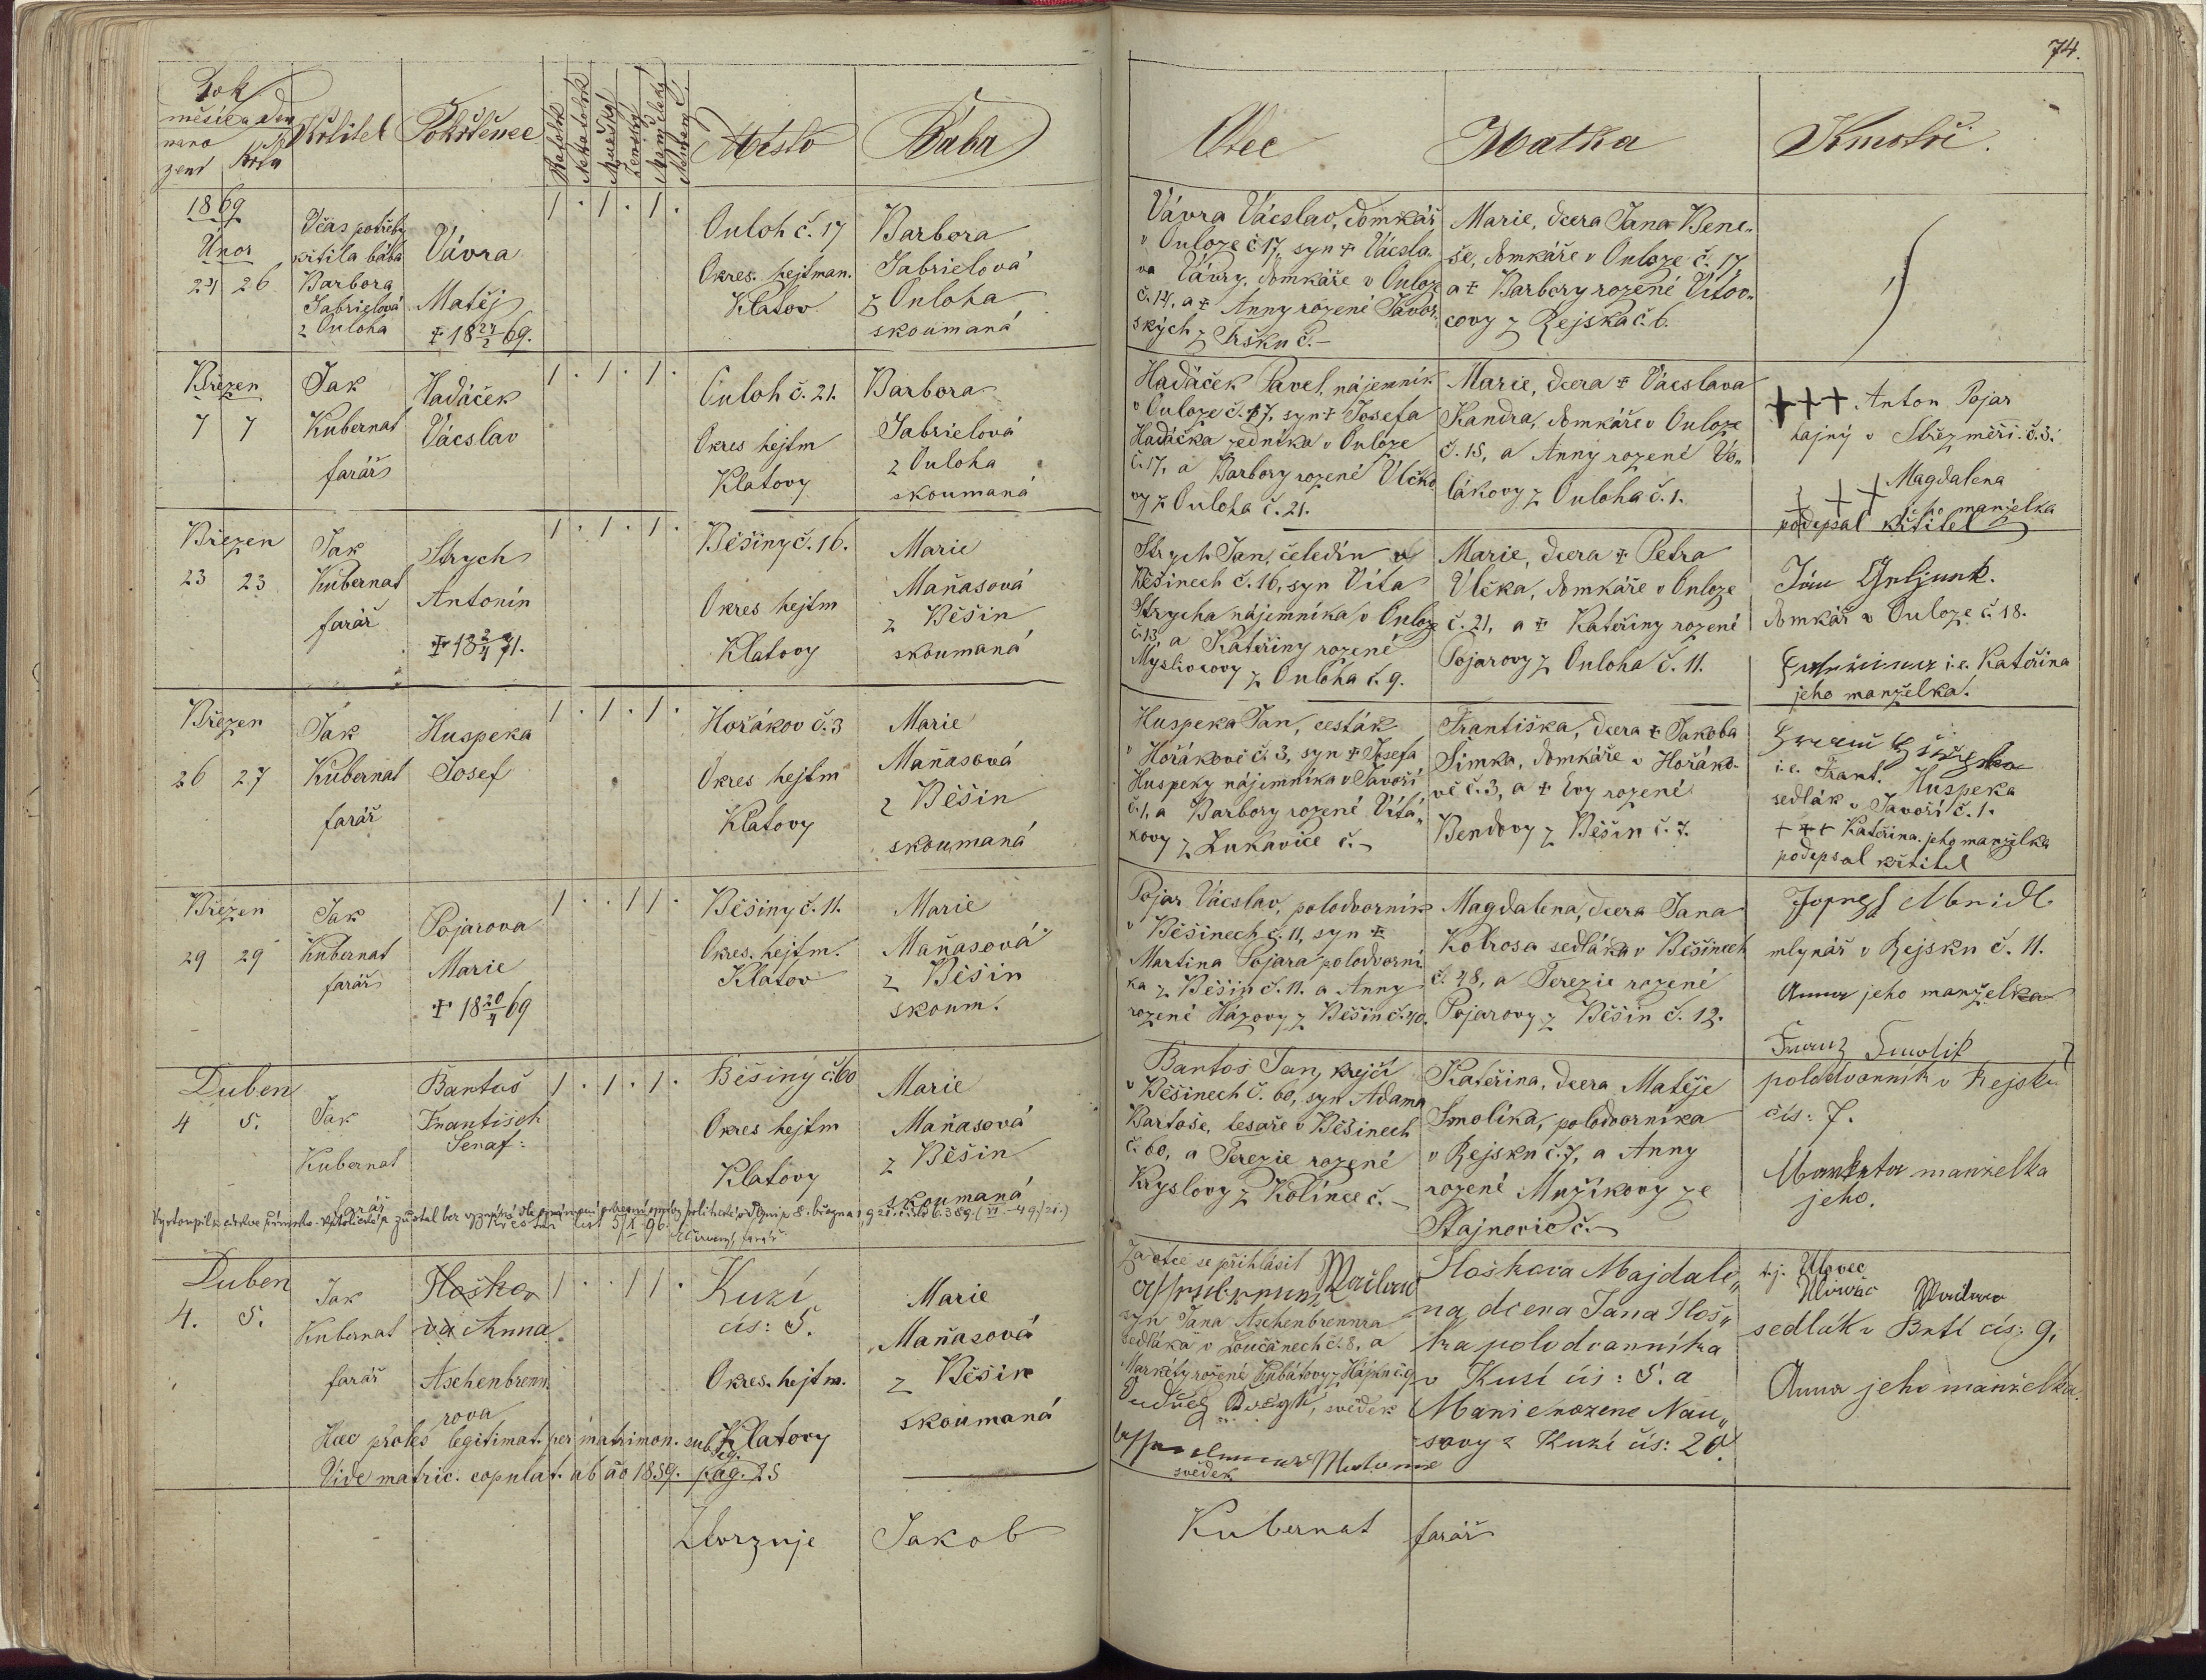 74.
Rok
měsíc a den
naro
zení
křtu
Křtitel
Pokřtěnec
Katolík
Nekatolík
Mužský
Ženský
Manželský
Nemanž.
Místo
Bába
Otec
Matka
Kmotři.
1869
Únor
24 26
Včas potřeby
křtila bába
Barbora
Gabrielová
z Ouloha
Vávra
Matěj
✝ 18 27/2 69.
1 . 1 . 1 .
Ouloh č. 17
Okres. hejtman.
Klatov
Barbora
Gabrielová
z Ouloha
skoumaná
Vávra Václav, domkář
v Ouloze č 17, syn ✝ Václa-
va Vávry, domkáře v Ouloze
č. 14, a ✝ Anny rozené Javor
ských z Fršku č. –
Marie, dcera Jana Bene-
še, domkáře v Ouloze č. 17,
a ✝ Barbory rozené Vítov-
covy z Rejska č. 6.
Březen
7 7
Jak
Kubernat
farář
Hadáček
Vácslav
1 . 1 . 1 .
Ouloh č. 21.
Okres hejtm
Klatovy
Barbora
Gabrielová
z Ouloha
skoumaná
Hadáček Pavel, nájemník
v Ouloze č. 17, syn ✝ Josefa
Hadáčka zedníka v Ouloze
č. 17, a Barbory rozené Vlčko
vy z Ouloha č. 21.
Marie, dcera ✝ Vácslava
Kandra, domkáře v Ouloze
č. 15, a Anny rozené Vo-
lákovy z Ouloha č. 1.
+++ Anton Pojar
hajný v Střezměři. č. 3.
+++ Magdalena
jeho manželka
podepsal křtitel
Březen
23 23
Jak
Kubernat
farář
Strych
Antonín
✝ 18 71.
1 . 1 . 1 .
Běšiny č. 16.
Okres hejtm
Klatovy
Marie
Maňasová
z Běšin
skoumaná
Strych Jan, čeledín v
Běšinech č. 16, syn Víta
Strycha nájemníka v Ouloze
č. 13, a Kateřiny rozené
Myslivcovy z Ouloha č. 9.
Marie, dcera ✝ Petra
Vlčka, domkáře v Ouloze
č. 21, a ✝ Kateřiny rozené
Pojarovy z Ouloha č. 11.
domkář v Ouloze č 18.
i.e. Kateřina
jeho manželka.
Březen
26 27
Jak
Kubernat
farář
Huspeka
Josef
1 . 1 . 1 .
Hořákov č. 3
Okres hejtm
Klatovy
Marie
Maňasová
z Běšin
skoumaná
Huspeka Jan, cesták
v Hořákově č. 3, syn ✝ Josefa
Huspeky nájemníka v Javoří
č. 1, a Barbory rozené Vítá-
kovy z Lukavice č. –
Františka, dcera ✝ Jakoba
Šimka, domkáře v Hořáko-
vě č. 3, a ✝ Evy rozené
Bendovy z Běšin č. 7.
i.e. Frant. Huspeka
sedlák v Javoří č. 1.
+++ Kateřina jeho manželka
podepsal křtitel
Březen
29 29
Jak
Kubernat
farář
Pojarova
Marie
✝ 18 20/4 69
1 . . 1 1 .
Běšiny č. 11.
Okres. hejtm.
Klatov
Marie
Maňasová
z Běšin
skoum.
Pojar Vácslav, polodvorník
v Běšinech č. 11, syn ✝
Martina Pojara polodvorní
ka z Běšin č. 11. a Anny
rozené Házovy z Běšin č. 40.
Magdalena, dcera Jana
Kotrosa sedláka v Běšinech
č. 48, a Terezie rozené
Pojarovy z Běšin č. 12.
mlynář v Rejsku č. 11.
Anna jeho manželka
Duben
4 5.
Jak
Kubernat
farář
Bartoš
František
Seraf:
1 . 1 . 1 .
Běšiny č. 60
Okres hejtm
Klatovy
Marie
Maňasová
z Běšin
skoumaná
Bartoš Jan, krejčí
v Běšinech č. 60, syn Adama
Bartoše, tesaře v Běšinech
č. 60, a Terezie rozené
Kryslovy z Kolince č. –
Kateřina, dcera Matěje
Smolíka, polodvorníka
v Rejsku č. 7, a Anny
rozené Mužíkovy ze
Stajnovic č. –
Franz Smolik
polodvorník v Rejsku
čís: 7.
Markéta manželka
jeho.
Vystoupil z církve římsko-katolické a zůstal bez vyznání
Křestní list 5/X 96.
Duben
4. 5.
Jak
Kubernat
farář
Hoško
va Anna
Aschenbrenn
rova
1 . . 1 1 .
Kuzí
čís: 5.
Okres. hejtm.
Klatovy
Marie
Maňasová
z Běšin
skoumaná
Haec proles legitimat. per matrimon. subseq.
Vide matric. copulat. ab ao 1859. pag. 25
Za otce se přihlásil
syn Jana Aschenbrennra
sedláka v Loučanech č. 8, a
Markéty rozené Kubátovy z Hájku č. 9
svědek
svědek
Hoškova Majdale-
na, dcera Jana Hoš-
ka polodvorníka
v Kuzí čís: 5. a
Marie rozene Nau-
sovy z Kuzí čís: 20.
t.j. Ulovec
sedlák v Brtí čís: 9,
Anna jeho manželka.
Ztvrzuje Jakob Kubernat farář